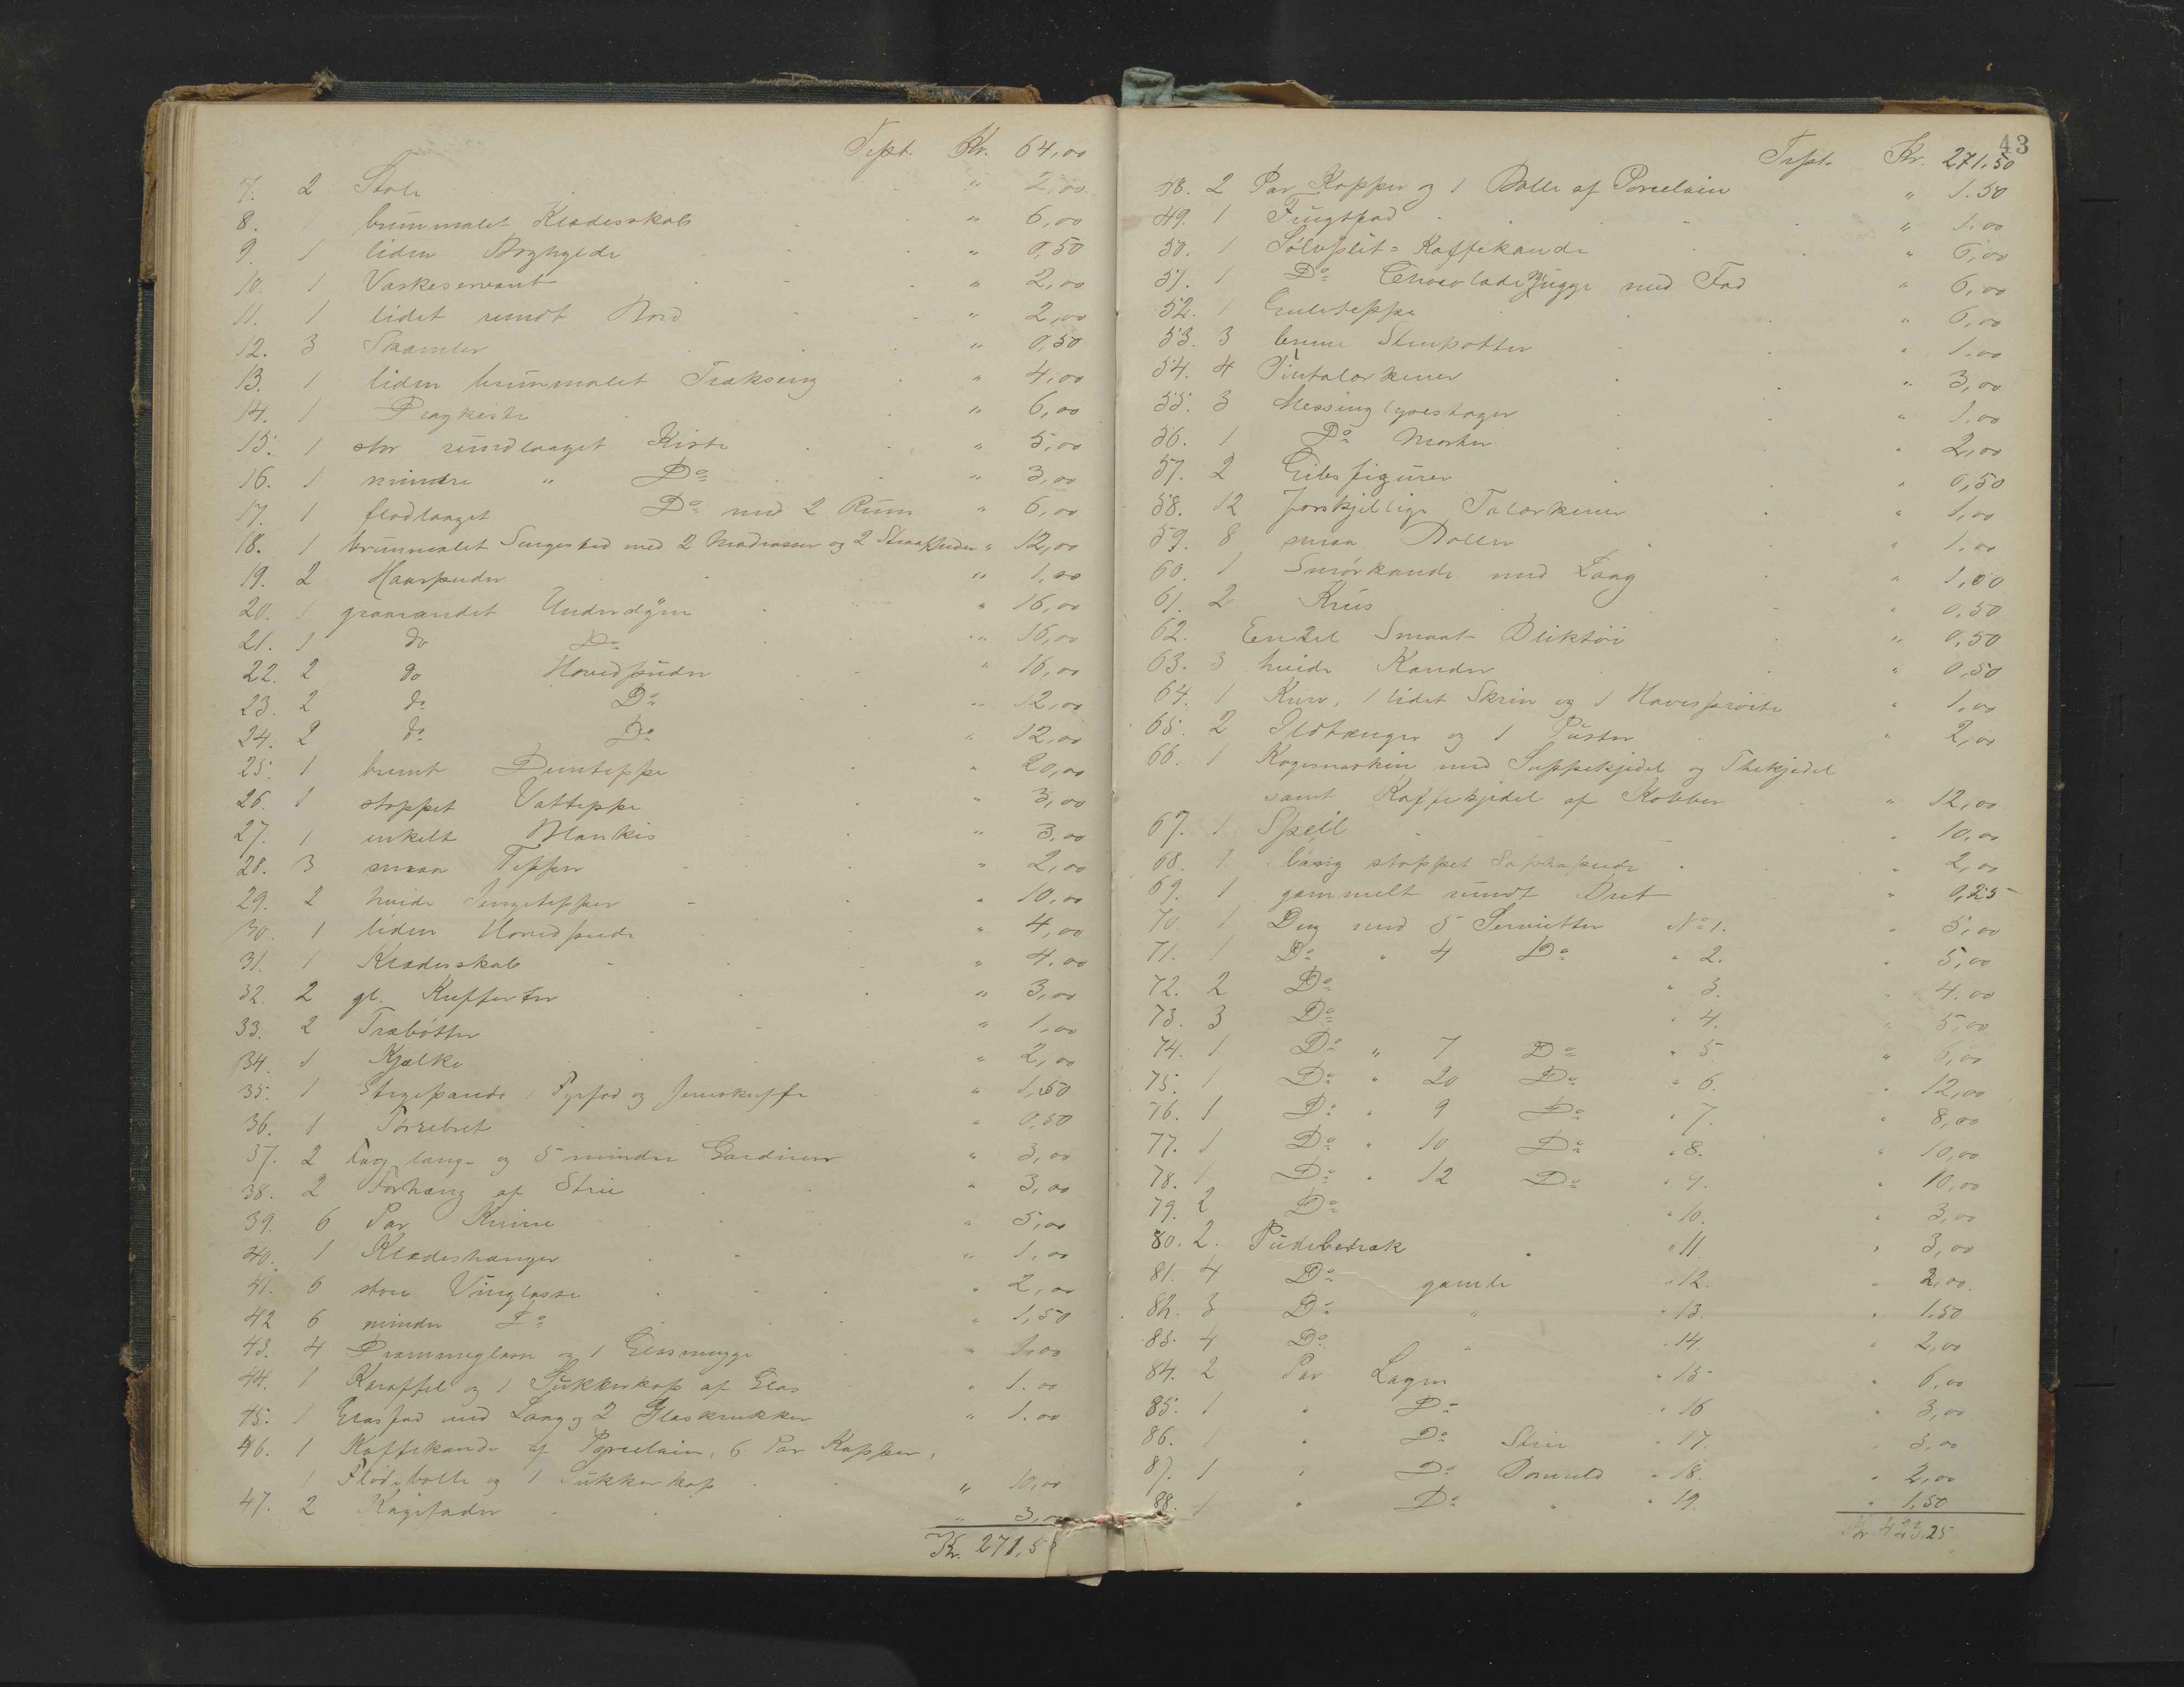 Trpt. Kr. 64,00
7. 2 Stole " 2,00
8. 1 brunmalet Klædesskab " 6,00
9. 1 liden Boghylde " 0,50
10. 1 Vaskeservant " 2,00
11. 1 lidet rundt Bord " 2,00
12. 3 Skamler " 0,50
13. 1 liden brunmalet Trækseng " 4,00
14. 1 Dragkiste " 6,00
15. 1 stor rundlaaget Kiste " 5,00
16. 1 mindre " Do " 3,00
17. 1 fladlaaget Do med 2 Rum " 6,00
18. 1 brunmalet Sengested med 2 Madrasser og 2 Straapuder " 12,00
19. 2 Haarpuder " 1,00
20. 1 graarandet Underdyne " 16,00
21. 1 do Do " 16,00
22. 2 do Hovedpuder " 16,00
23. 2 do Do " 12,00
24. 2 do Do " 12,00
25. 1 brunt Duntæppe " 20,00
26. 1 stoppet Vatteppe " 3,00
27. 1 enkelt Blankis " 3,00
28. 3 smaa Tepper " 2,00
29. 2 hvide Sengetepper " 10,00
30. 1 liden Hovedpude " 4,00
31. 1 Klædesskab " 4,00
32. 2 gl. Kufferter " 3,00
33. 2 Træbøtter " 1,00
34. 1 Kjælke " 2,00
35. 1 Stegepande, Fyrfad og Jernskuffe " 1,50
36. 1 Tørrebret " 0,50
37. 2 Fag lange og 5 mindre Gardiner " 3,00
38. 2 Forhæng af Strie " 3,00
39. 6 Par Knive " 5,00
40. 1 Klædeshænger " 1,00
41. 6 store Vinglasse " 2,00
42 6 mindre Do " 1,50
43. 4 Drammeglasse og 1 Glasmugge " 1,00
44. 1 Karaffel og 1 Sukkerkop af Glas " 1.00
45. 1 Glasfad med Laag og 2 Glaskrukker " 1.00
46. 1 Kaffekande af Porcelain, 6 Par Kopper,
1 Flødebolle og 1 Sukkerkop " 10,00
47. 2 Kagefader " 3,00
Kr. 271,5
43
Trpt. Kr. 271,50
48. 2 Par Kopper og 1 Bolle af Porcelain " 1.50
49. 1 Frugtfad " 1.00
50. 1 Sølvplet=Kaffekande " 6,00
51. 1 Do Chocolademugge med Fad " 6,00
52. 1 Gulvteppe " 6,00
53. 3 brune Stenpotter " 1.00
54. 4 Tintalærkener " 3,00
55. 3 Messinglysestager " 1.00
56. 1 Do Morter " 2,00
57. 2 Gibsfigurer " 0,50
58. 12 forskjellige Talærkener " 1,00
59. 8 smaa Boller " 1.00
60. 1 Smørkande med Laag " 1,00
61. 2 Krus " 0,50
62. Endel Smaat Bliktøi " 0,50
63. 3 hvide Kander " 0,50
64. 1 Kurv, 1 lidet Skrin og 1 Havesprøite " 1,00
65. 2 Ildtænger og 1 Puster " 2,00
66. 1 Kogemaskin med Suppekjedel og Thekjedel
samt Kaffekjedel af Kobber " 12,00
67. 1 Speil " 10,00
68. 1 lang stoppet Sophapude " 2,00
69. 1 gammelt rundt Bret " 0,25
70. 1 Dug med 5 Servietter No 1. " 5,00
71. 1 Do " 4 Do " 2. " 5,00
72. 2 Do " 3. " 4.00
73. 3 Do " 4. " 5,00
74. 1 Do " 7 Do " 5 " 6,00
75. 1 Do " 20 Do " 6. " 12,00
76. 1 Do " 9 Do " 7. " 8,00
77. 1 Do " 10 Do " 8. " 10,00
78. 1 Do " 12 Do " 9. " 10,00
79. 2 Do " 10. " 3,00
80. 2. Pudebetræk " 11. " 3,00
81. 4 Do gamle " 12. " 2,00
82. 3 Do " " 13. " 1.50
83. 4 Do " " 14. " 2,00
84. 2 Par Lagen " 15 " 6,00
85. 1 " Do " 16 " 3,00
86. 1 " Do Strie " 17. " 3,00
87. 1 " Do Bomuld " 18. " 2,00
88. 1 " Do " " 19. " 1,50
Kr 423.25